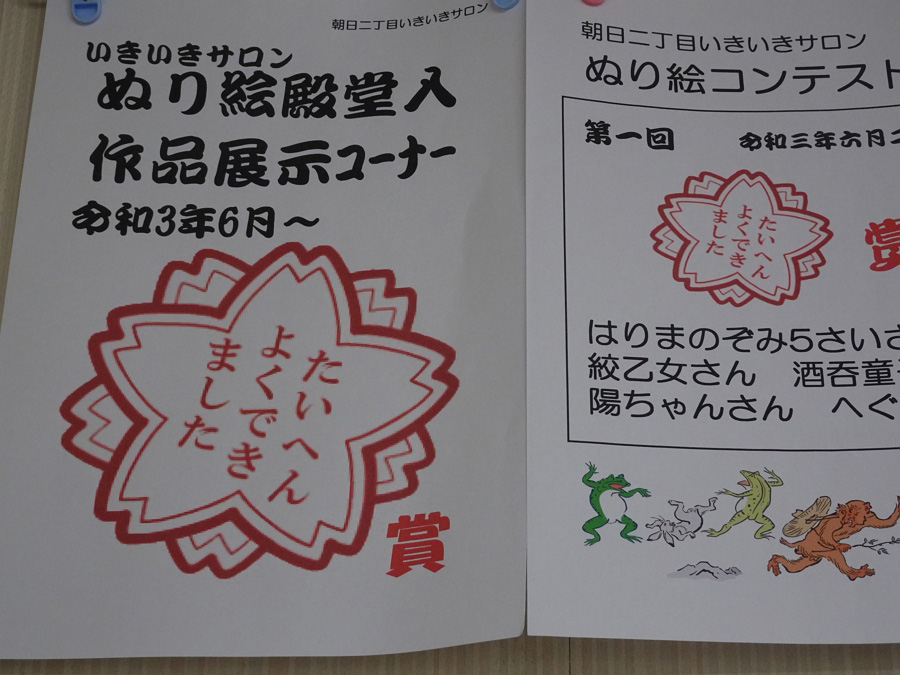 朝日二丁目いきいきサロン
いきいきサロン
ぬり絵殿堂入
作品展示コーナー
令和3年6月～
たいへん
よくでき
ました
賞
朝日二丁目いきいきサロン
ぬり絵コンテスト
第一回 令和三年六月
たいへん
よくでき
ました
賞
はりまのぞみ5さいさ
絞乙女さん 酒呑童
陽ちゃんさん へぐ